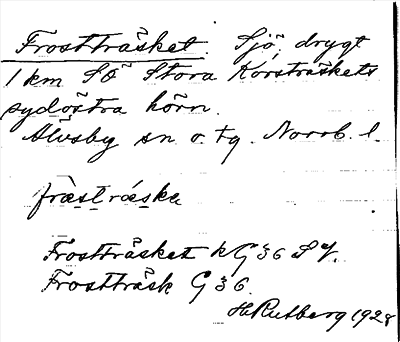 Frostträsket. Sjö, drygt
1 km SO Stora Korsträskets
sydöstra hörn.
Älvsby sn o. tg. Norrb. l.
fràstrɷ́skə
Frostträsket kG 36 SV.
Frostträsk G 36.
H Rutberg 1928